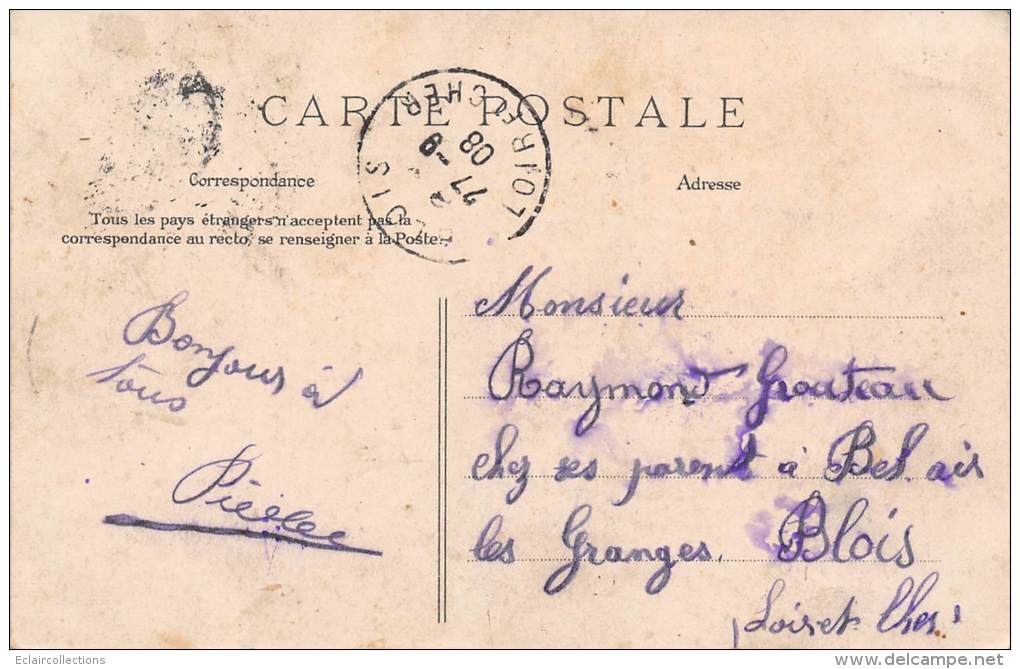 CARTE POSTALE
Correspondance
Adresse
Tous les pays étrangers n'acceptent pas la
correspondance au recto, se renseigner à la Poste.
LOIR ET CHER
77 -9
08
Bonjour à
tous
Monsieur
Raymond Grouteau
chez ses parent à Bel. air
les Granges. Blois
Loir et Cher
Eclaircollections
www.delcampe.net